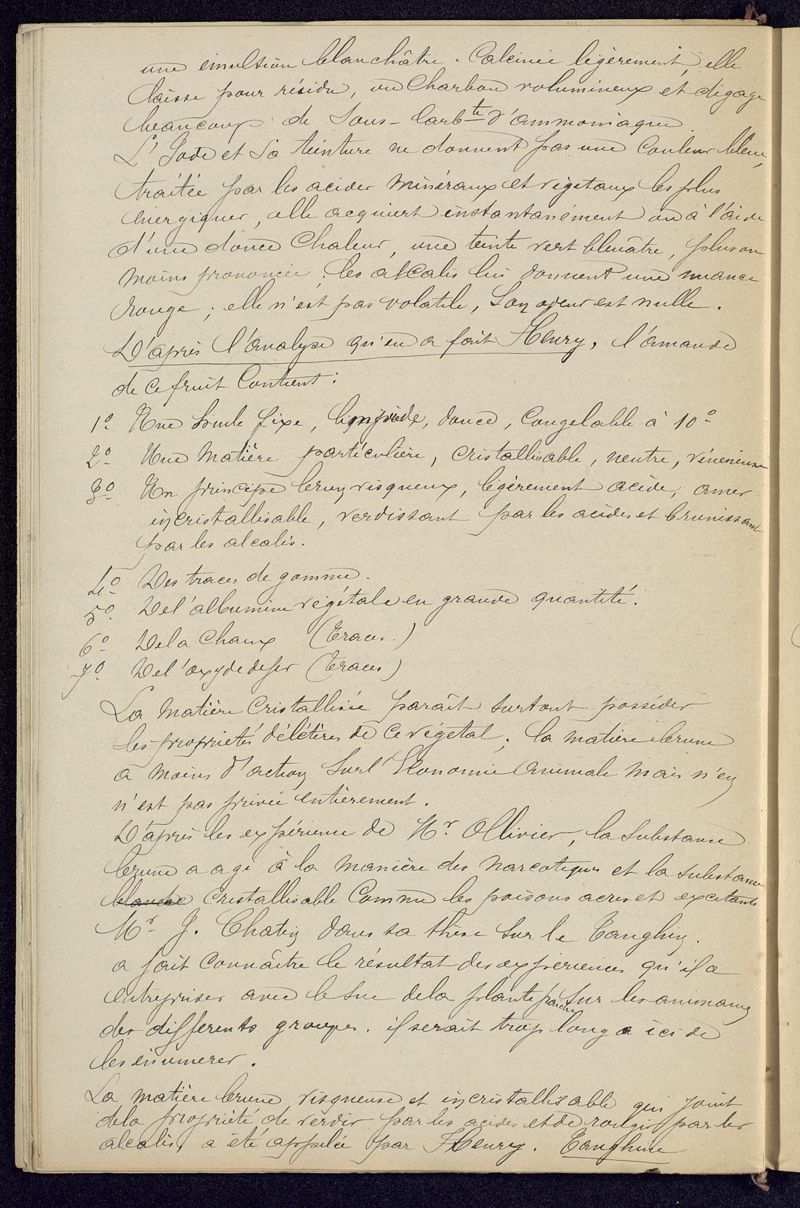 une émulsion blanchâtre. Calcinée légèrement, elle
laisse pour résidu, un Charbon volumineux et dégage
beaucoup de Sous-Carb^te d'ammoniaque
L'Iode et sa teinture ne donnent pas une Couleur bleue,
traitée par les acides minéraux et végétaux les plus
énergiques, elle acquiert instantanément ou à l'aide
d'une douce Chaleur, une teinte vert bleuâtre, plus ou
moins prononcée ; les alcalis lui donnent une nuance
rouge ; elle n'est pas volatile, Son odeur est nulle.
D'après l'analyse qu'en a fait Henry, l'amande
de ce fruit Contient :
1° Une huile fixe, limpide, douce, Congelable à 10°
2° Une Matière particulière, cristallisable, neutre, vénéneuse
3° Un principe brun, visqueux, légèrement acide, amer
incristallisable, verdissant par les acides et brunissant
par les alcalis.
4° Des traces de gomme.
5° De l'albumine végétale en grande quantité.
6° De la Chaux (traces.)
7° De l'oxyde de fer (traces)
La matière Cristallisée paraît surtout posséder
les propriétés délétères de ce végétal ; la matière brune
a moins d'action Sur l'Economie Animale Mais n'en
n'est pas privée entièrement.
D'après les expérience de Mr. Ollivier, la Substance
brune a agi à la manière des Narcotiques et la substance
blanche cristallisable Comme les poisons acres et excitants
Mr. J. Chatin dans sa thèse Sur le Tanghin.
a fait Connaître le résultat des expériences qu'il a
entreprises avec le Suc de la plante fraîche Sur les animaux
des differents groupes. il serait trop long a ici de
les énumerer.
La matière brune visqueuse et incristallisable qui jouit
de la propriété de verdir par les acides et de rougir par les
alcalis, a été appelée par Henry. Tanghine